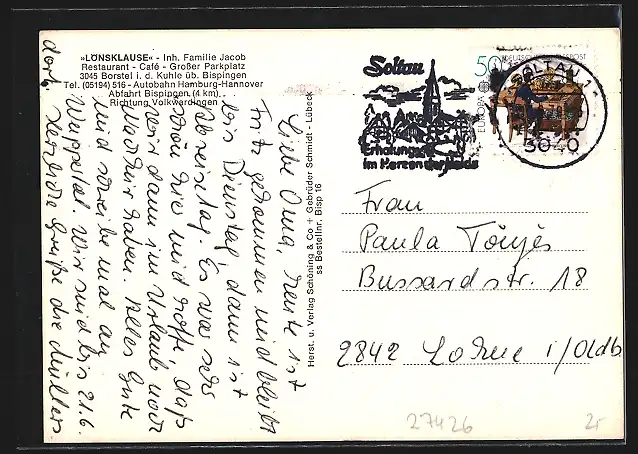 »LÖNSKLAUSE« - Inh. Familie Jacob
Restaurant - Café - Großer Parkplatz
3045 Borstel i. d. Kuhle üb. Bispingen
Tel. (05194) 516 - Autobahn Hamburg-Hannover
Abfahrt Bispingen (4 km)
Richtung Volkwardingen
Liebe Oma, heute ist
Fritz gekommen und bleibt
bis Dienstag, dann ist
Abreisetag. Es war sehr
schön hier und hoffe, daß
wir dann im Urlaub noch
Wetter haben. Alles Gute
und schreibe mal an
Wuppertal. Wir sind bis 21.6.
dort. Herzliche Grüße die Müllers
Herst. u. Verlag Schöning & Co + Gebrüder Schmidt - Lübeck
ss Bestellnr. Bisp 16
Soltau
Erholung
im Herzen der Heide
50
EUROPA
DEUTSCHE BUNDESPOST
SOLTAU 1
3040
Frau
Paula Tönjes
Bussardstr. 18
2842 Lohne i/Oldb
27426
2,-